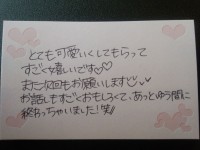 とても可愛いくしてもらって
すごく嬉しいです♡♡
また次回もお願いします♡
お話しもすごくおもしろくて、あっとゆう間に
終わっちゃいました!笑